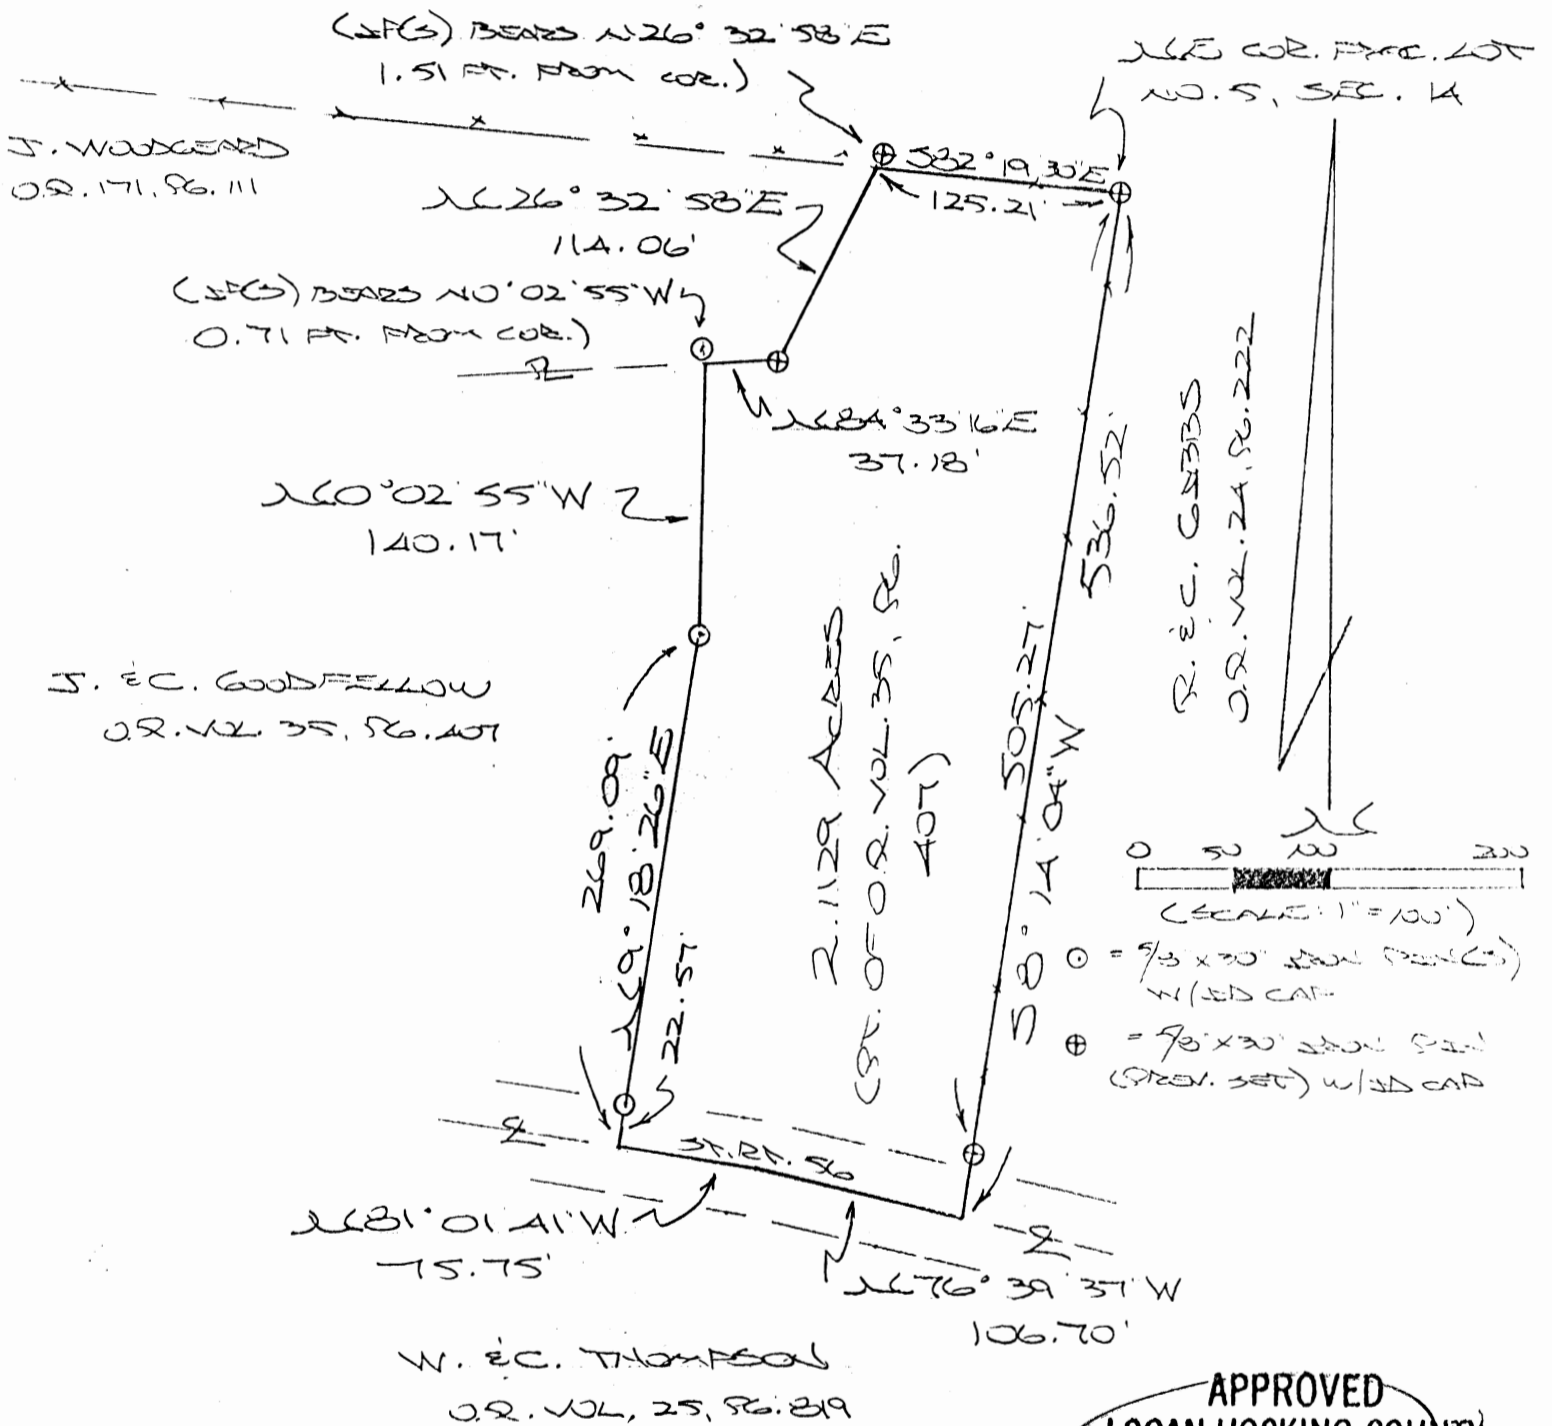 (IP(S) BEARS N26° 32' 58" E
1.51 FT. FROM COR.)
NE COR. FRAC. LOT
NO. 5, SEC. 14
J. WOODGEARD
O.R. 171, PG. 111
S82° 19' 30" E
125.21'
N26° 32' 58" E
114.06'
(IP(S) BEARS N0° 02' 55" W
0.71 FT. FROM COR.)
PL
N84° 33' 16" E
37.18'
N0° 02' 55" W
140.17'
R. & C. GIBBS
O.R. VOL. 24, PG. 222
536.52'
505.27'
S8° 14' 04" W
J. & C. GOODFELLOW
O.R. VOL. 35, PG. 407
269.09'
N9° 18' 26" E
22.57'
2.1129 ACRES
(PT. OF O.R. VOL. 35, PG.
407)
N
0 50 100 200
(SCALE: 1" = 100')
= 5/8" X 30" IRON PIN(S)
W/ID CAP
= 5/8" X 30" IRON PIN
(PREV. SET) W/ID CAP
CL
ST. RT. 56
CL
N81° 01' 41" W
75.75'
N76° 39' 37" W
106.70'
W. & C. THOMPSON
O.R. VOL, 25, PG. 819
APPROVED
LOGAN HOCKING COUNTY